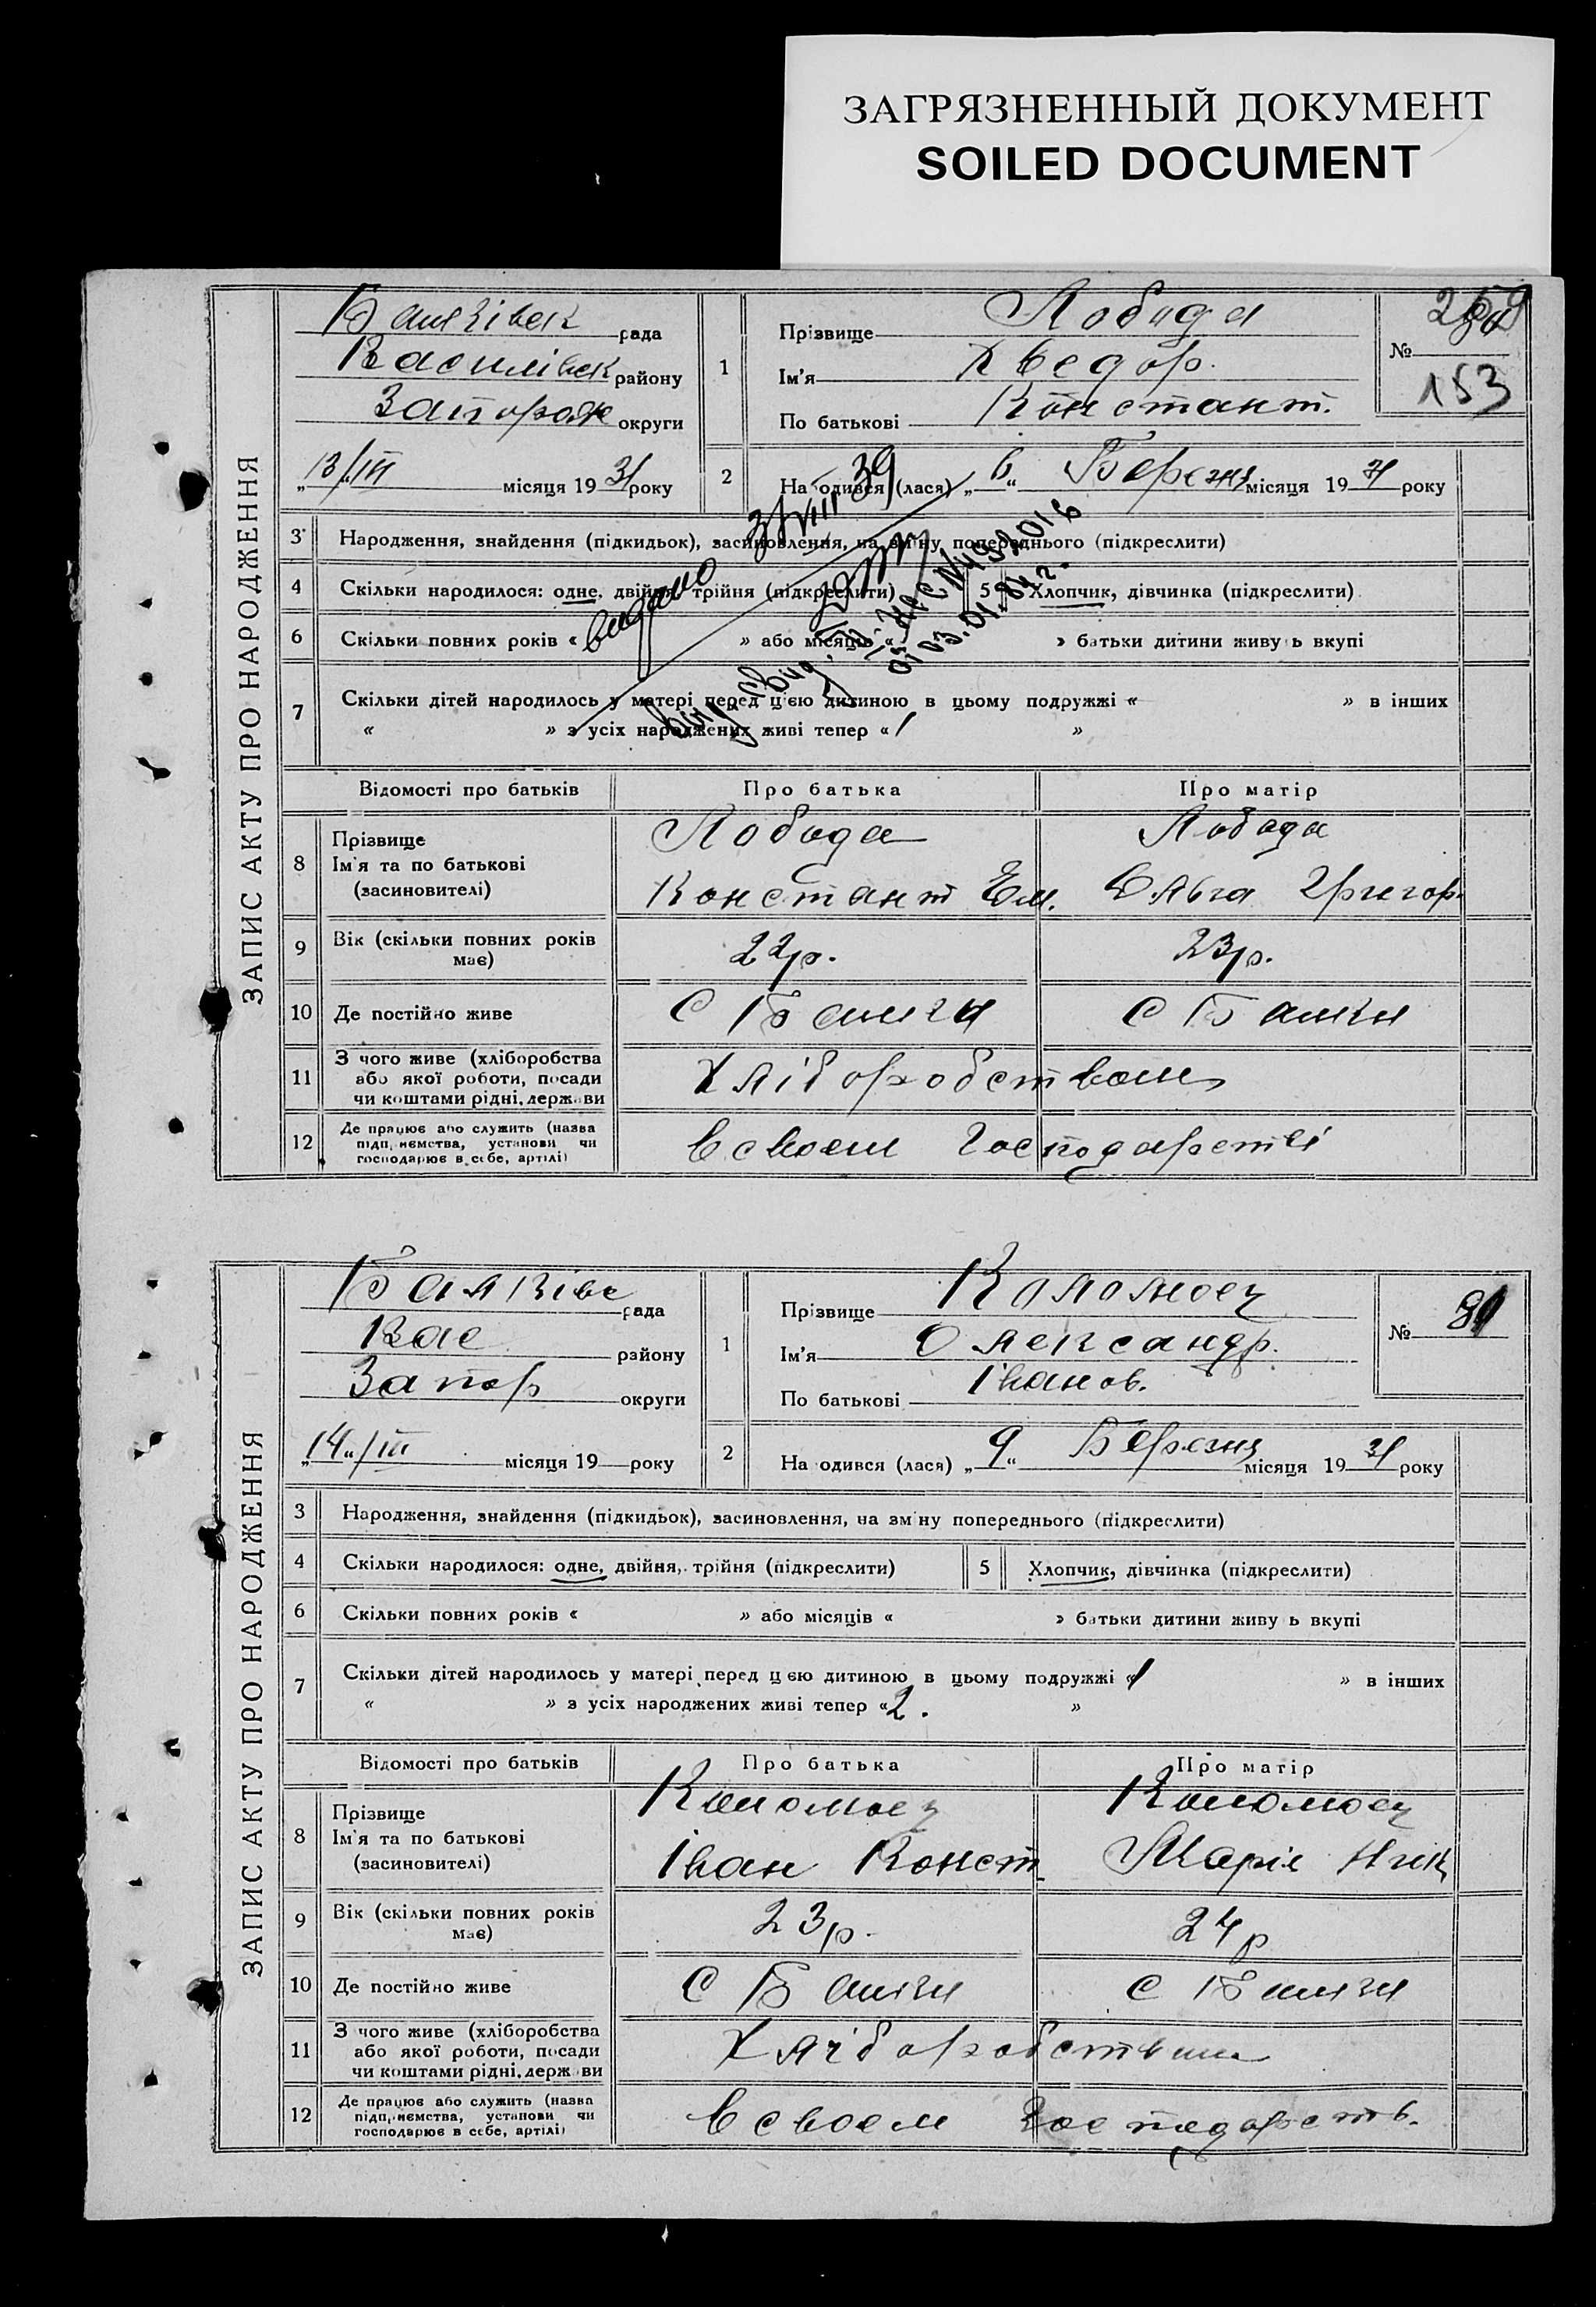 ЗАГРЯЗНЕННЫЙ ДОКУМЕНТ
SOILED DOCUMENT
ЗАПИС АКТУ ПРО НАРОДЖЕННЯ
Балківськ рада
Василівськ району
Запорож округи
"13/III місяця 1931 року
1
Прізвище Лобода
Ім'я Хведор.
По батькові Констант.
№
153
2
На одився (лася) „6“ Березня місяця 1931 року
видано 31/VIII 39
03.01.84 г.
3 Народження, знайдення (підкидьок), засиновлення, на зм ну попереднього (підкреслити)
4 Скільки народилося: одне, двійня, трійня (підкреслити) 5 Хлопчик, дівчинка (підкреслити)
6 Скільки повних років « » або місяців « » батьки дитини живу ь вкупі
7 Скільки дітей народилось у матері перед цією дитиною в цьому подружжі « » в інших
« » з усіх народжених живі тепер «1 »
Відомості про батьків Про батька Про матір
8 Прізвище Лобода Лобода
Ім'я та по батькові
(засиновителі) Констант Ем. Ольга Григор.
9 Вік (скільки повних років має) 22р. 23р.
10 Де постійно живе С Балки С Балки
11 З чого живе (хліборобства або якої роботи, посади чи коштами рідні, держави Хліборобством
12 Де працює або служить (назва підприємства, установи чи господарює в себе, артілі) В своєм Господарстві
ЗАПИС АКТУ ПРО НАРОДЖЕННЯ
Балківс рада
Вас району
Запор округи
„14“/III місяця 19 року
1
Прізвище Коломоец
Ім'я Олександр.
По батькові Іванов.
№ 81
2
На одився (лася) „9“ Березня місяця 1931 року
3 Народження, знайдення (підкидьок), засиновлення, на зм ну попереднього (підкреслити)
4 Скільки народилося: одне, двійня, трійня (підкреслити) 5 Хлопчик, дівчинка (підкреслити)
6 Скільки повних років « » або місяців « » батьки дитини живу ь вкупі
7 Скільки дітей народилось у матері перед ц єю дитиною в цьому подружжі «1 » в інших
« » з усіх народжених живі тепер «2. »
Відомості про батьків Про батька Про матір
8 Прізвище Коломоец Коломоец
Ім'я та по батькові
(засиновителі) Іван Конст. Марія Ник
9 Вік (скільки повних років має) 23р. 24р
10 Де постійно живе С Балки С Балки
11 З чого живе (хліборобства або якої роботи, посади чи коштами рідні, держ ви Хліборобством
12 Де працює або служить (назва підприємства, установи чи господарює в себе, артілі) В своєм Господарств.